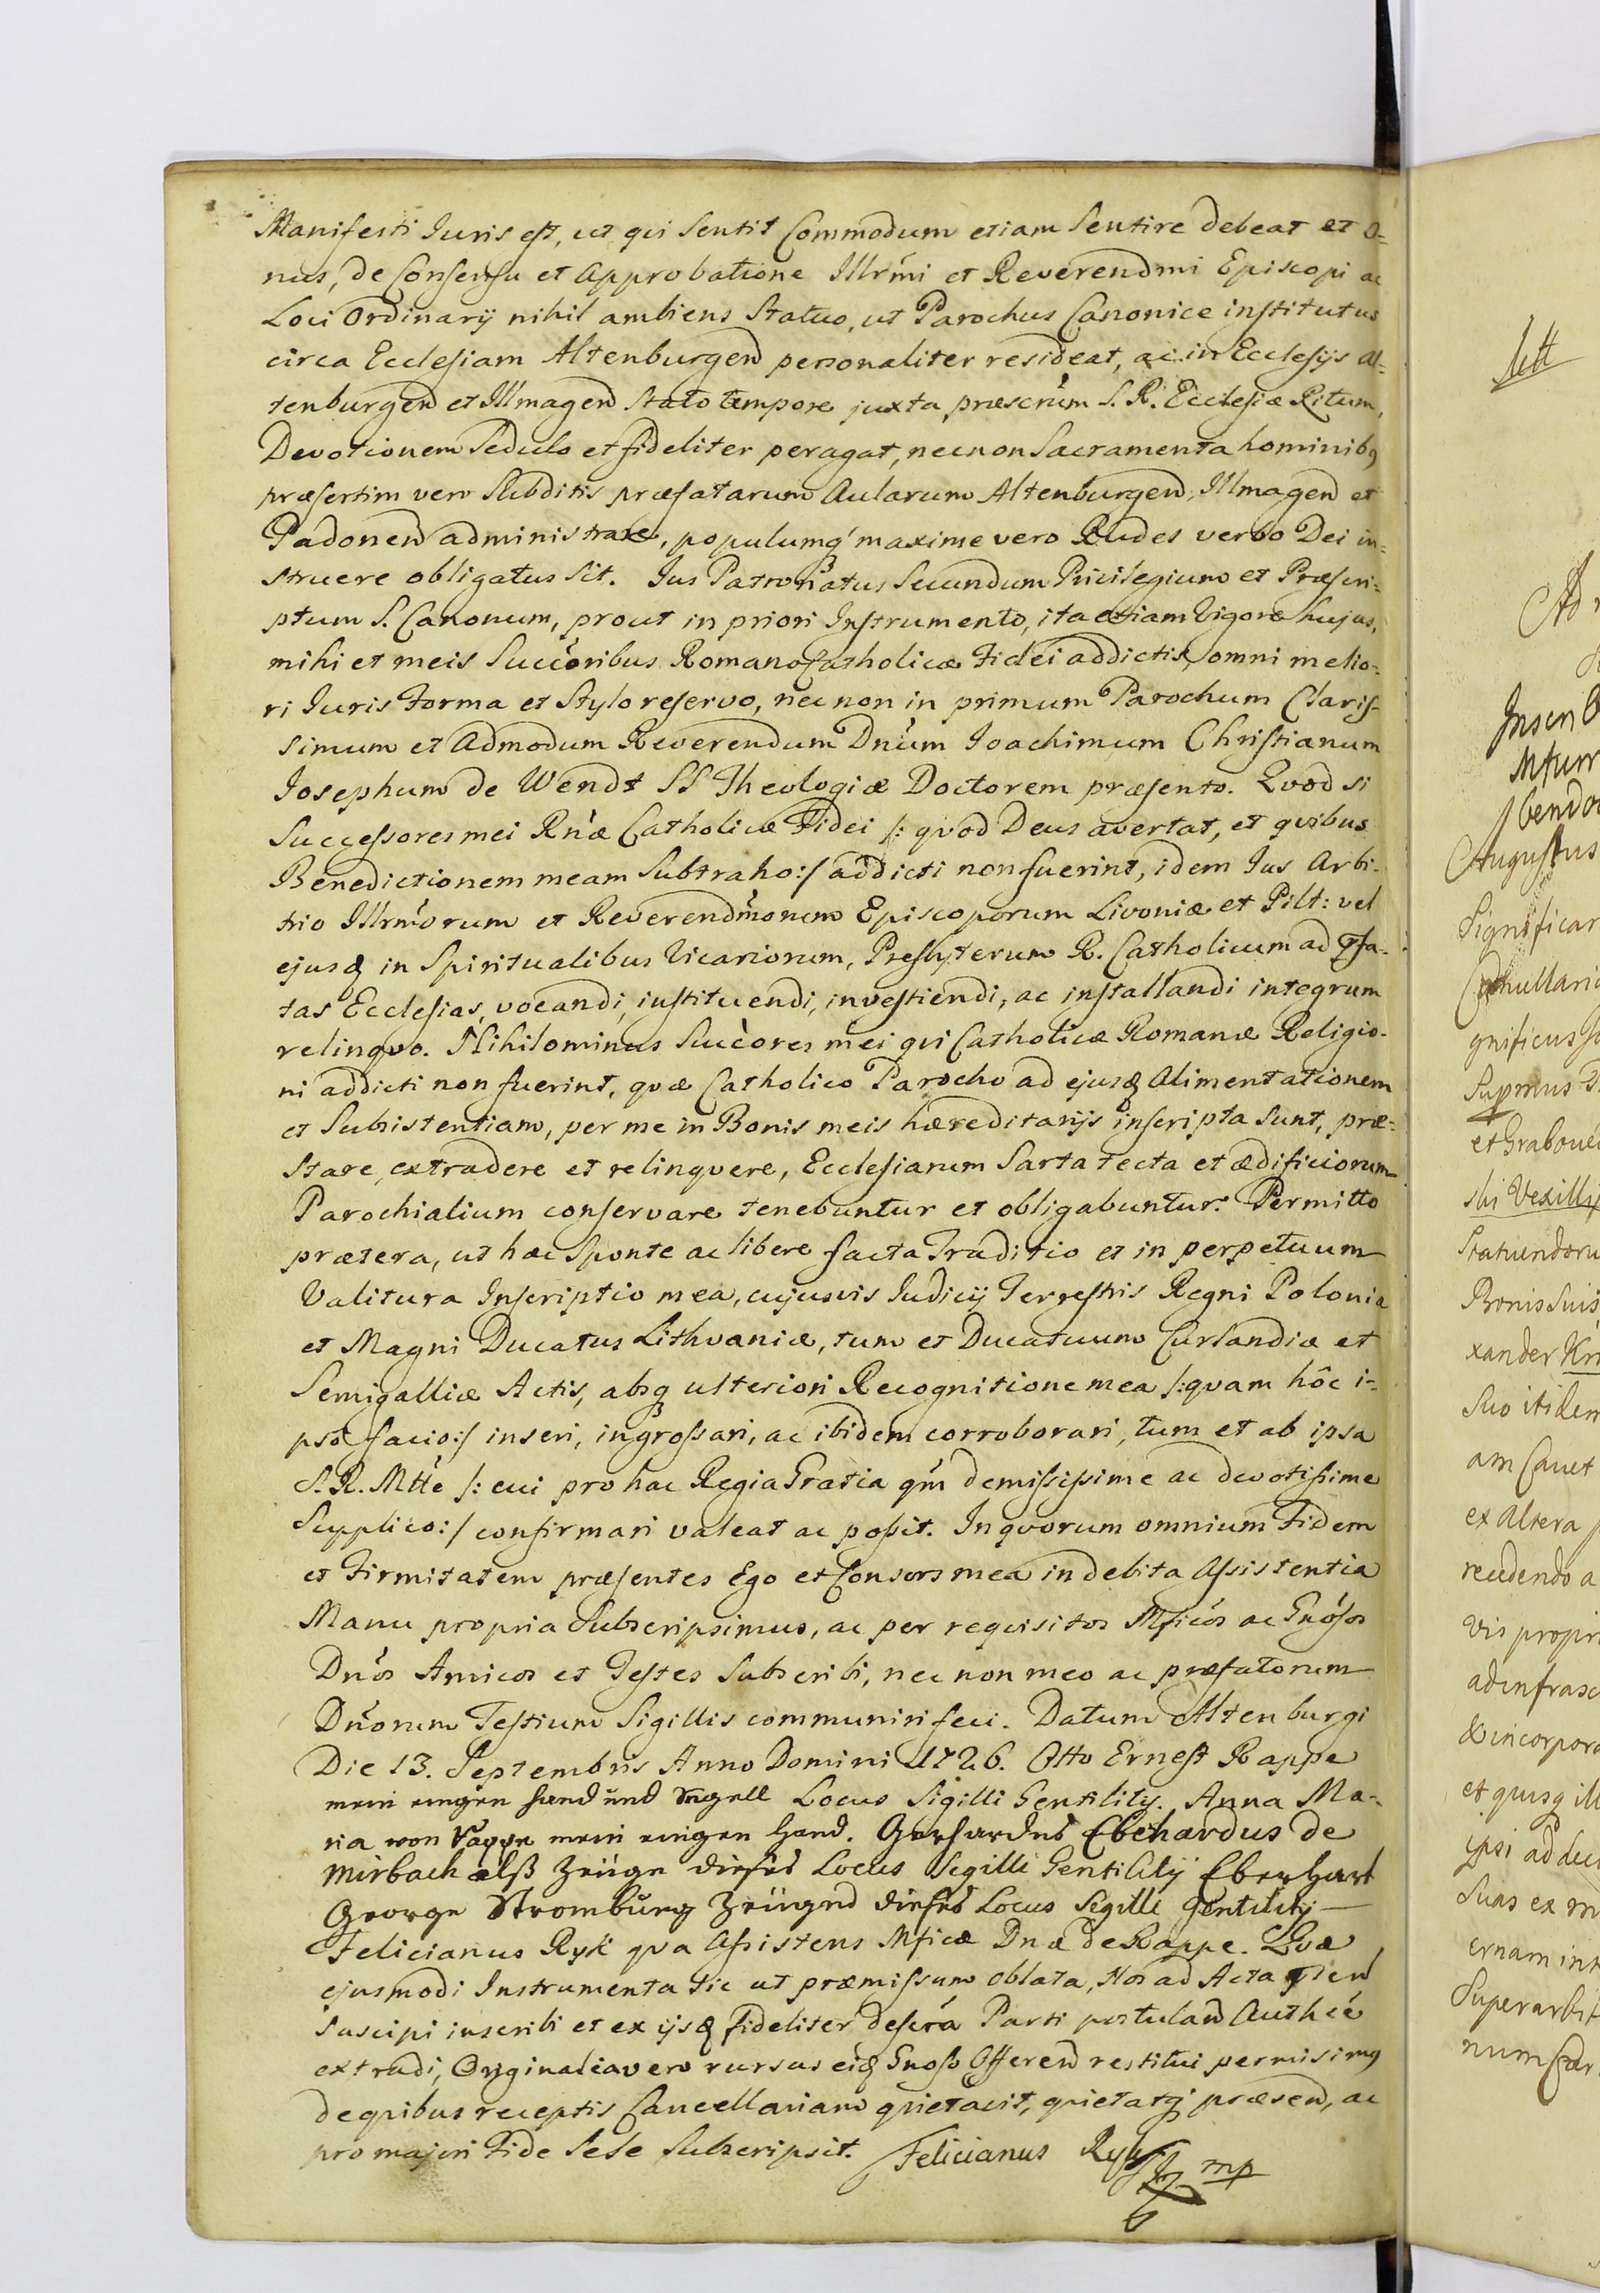 Manifesti Juris est, ut qui sentit Commodum etiam sentire debeat et O=
nus, de Consensu et Approbatione Illrmi et Reverendmi Episcopi ac
Loci Ordinarij nihil ambiens Statuo, ut Parochus Canonice institutus
circa Ecclesiam Altenburgen personaliter resideat, ac in Ecclesijs Al=
tenburgen et Illmagen stato tempore juxta præscrum S. R. Ecclesiæ Ritum,
Devotionem sedulo et fideliter peragat, necnon Sacramenta hominibq
præsertim vero Subditis præfatarum Aularum Altenburgen, Illmagen et
Padonen administrare, populumq maxime vero Rudes verbo Dei in=
struere obligatus sit. Jus Patronatus secundum Privilegium et Præscri=
ptum S. Canonum, prout in priori Instrumento, ita etiam Vigore hujus,
mihi et meis Succoribus Romano Catholicæ Fidei addictis, omni melio=
ri Juris forma et Stylo reservo, nec non in primum Parochum Claris-
simum et Admodum Reverendum Dnum Joachimum Christianum
Josephum de Wendt SS Theologiæ Doctorem præsento. Quod si
Successores mei Rnæ Catholicæ Fidei /: quod Deus avertat, et quibus
Benedictionem meam Subtraho :/ addicti non fuerint, idem Jus Arbi-
trio Illrmorum et Reverendmorum Episcoporum Livoniæ et Pilt: vel
ejusq in Spiritualibus Vicariorum, Presbyterum R. Catholicum ad pfa-
tas Ecclesias, vocandi, instituendi, investiendi, ac installandi integrum
relinquo. Nihilominus Succores mei qui Catholicæ Romanæ Religio-
ni addicti non fuerint, quæ Catholico Parocho ad ejusq Alimentationem
et Subsistentiam, per me in Bonis meis hæreditarijs inscripta sunt, præ=
stare, extradere et relinquere, Ecclesiarum Sarta tecta et ædificiorum
Parochialium conservare tenebuntur et obligabuntur. Permitto
prætera, ut hæc sponte ac libere facta Traditio et in perpetuum
Valitura Inscriptio mea, cujusvis Judicij Terrestris Regni Poloniæ
et Magni Ducatus Lithvaniæ, tum et Ducatuum Curlandiæ et
Semigalliæ Actis, absq ulteriori Recognitione mea /: quam hôc i=
pso facio :/ inseri, ingrossari, ac ibidem corroborari, tum et ab ipsa
S. R. Mtte /: cui pro hac Regia Gratia qm demississime ac devotissime
Supplico :/ confirmari valeat ac possit. In quorum omnium Fidem
et Firmitatem præsentes Ego et Consors mea in debita Assistentia
Manu propria Subscripsimus, ac per requisitos Mficos ac Gnosos
Dnos Amicos et Testes Subscribi, nec non meo ac præfatorum
Dnorum Testium Sigillis communiri feci. Datum Altenburgi
Die 13. Septembris Anno Domini 1726. Otto Ernest Rappe
mein eingen hand und Sigell Locus Sigilli Gentilitij. Anna Ma-
ria von Rappe mein eingen Hand. Gerhardus Ebehardus de
Mirbach alß Zeüge dieses Locus Sigilli Gentilitij Eberhart
George Stromburg Zeüge dieses Locus Sigilli Gentilitij
Felicianus Ryk qua Assistens Mficæ Dnæ de Rappe. Quæ
ejusmodi Instrumenta sic ut præmissum oblata, Nos ad Acta psen
suscipi inscribi et ex ijsq fideliter descra Parti postulan Authce
extradi, Originalia vero rursus eiq Gnoso Offeren restitui permisimq
de quibus receptis Cancellariam quietavit, quietatq præsen, ac
pro majori Fide sese subscripsit. Felicianus Ryk mp
Augustus
Significar
gnificus
Supremus
Vexilli
Statuendoru
Bonis Suis
xander
Suo itidem
am Cavet
ex altera
recedendo a
vis propri
ad infrasc
& incorpora
et quisq ill
ipsi ad
Suas ex
ernam
Super arbit